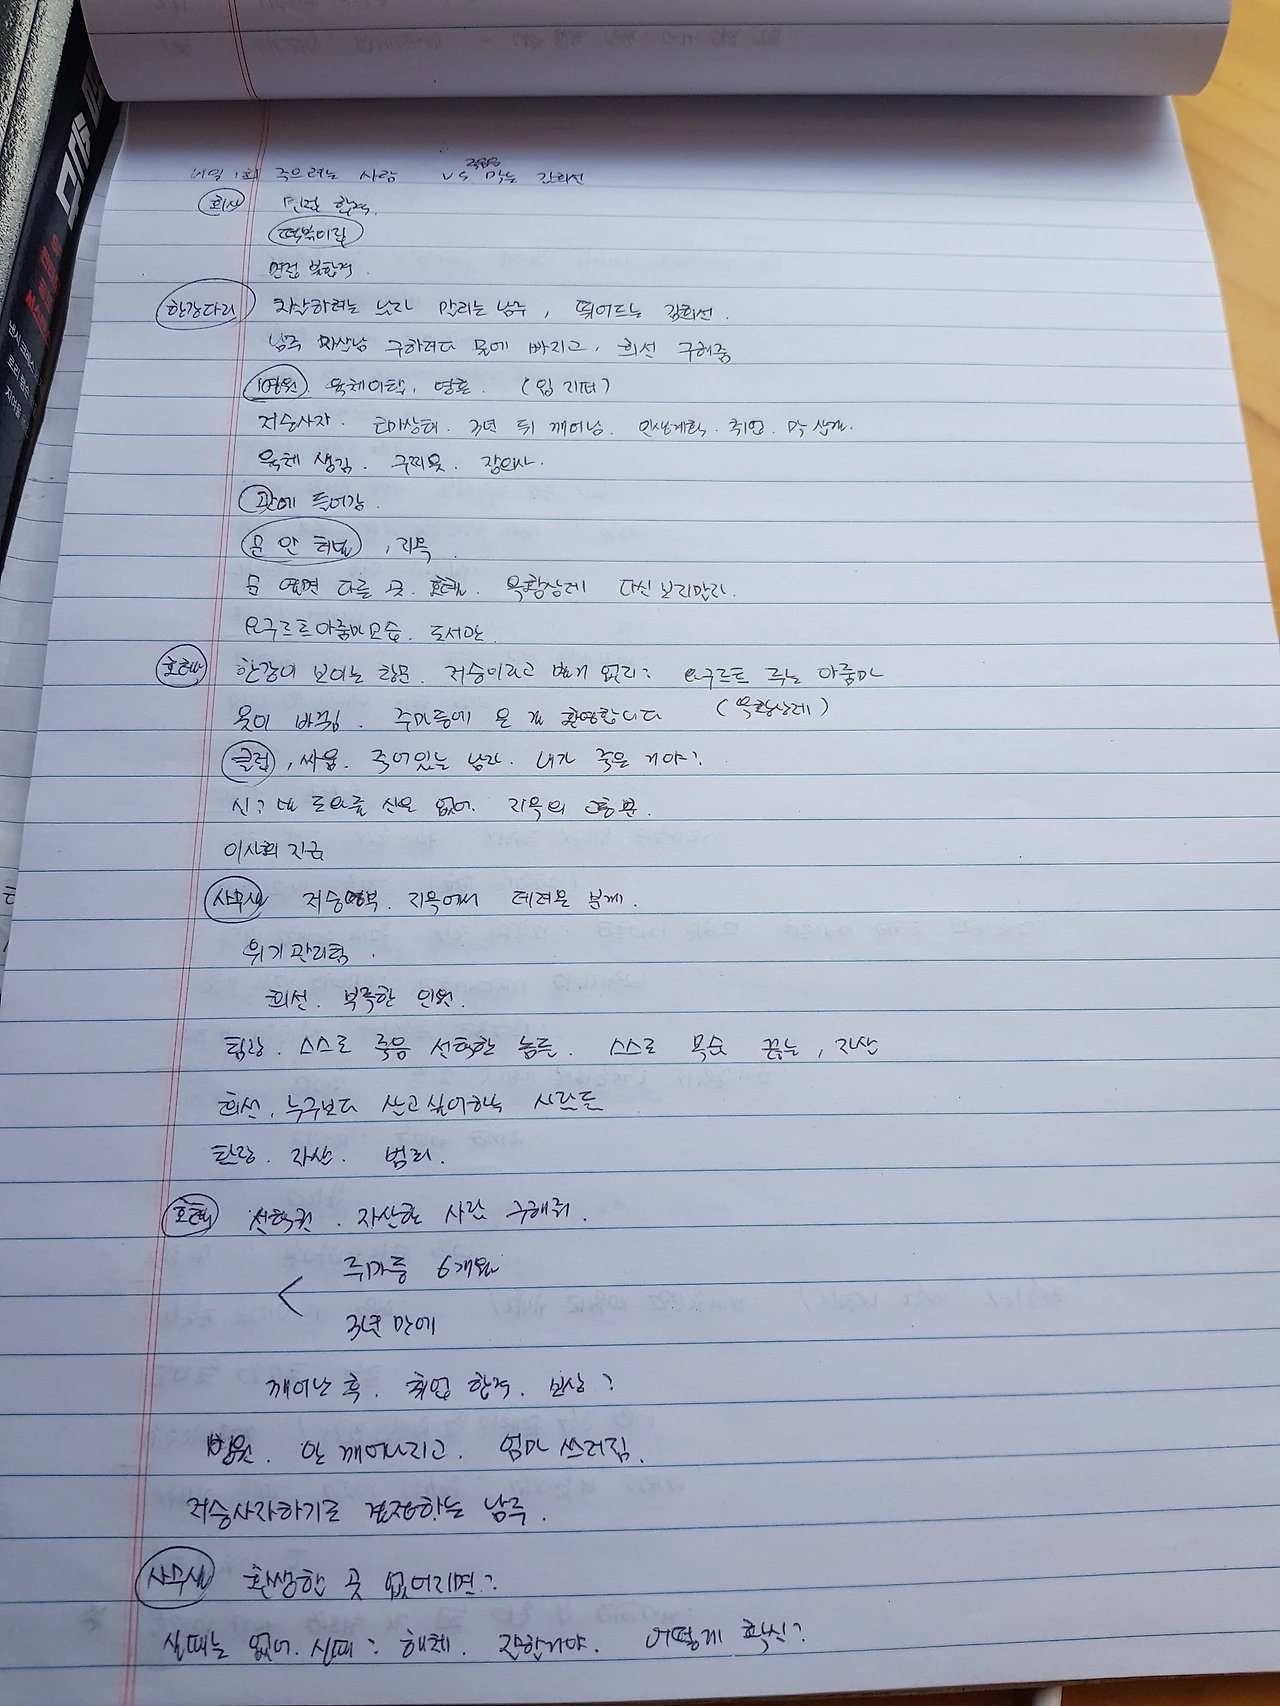 내일 1회 죽으려는 사람 vs 죽음을 막는 김희선
회사 면접 합격.
떡볶이집
면접 불합격.
한강다리 자살하려는 남자 말리는 남주, 뛰어드는 김희선.
남주 자살남 구하려다 물에 빠지고, 희선 구해줌
병원 육체이탈, 영혼. (임 지퍼)
저승사자. 코마상태. 3년 뒤 깨어남. 인생계획. 취업.
육체 생김. 구찌옷. 장의사.
관에 들어감.
문 안 터널, 지옥.
문 열면 다른 곳. 호텔. 옥황상제 다신 보지말자.
요구르트아줌마모습. 도서관.
호텔 한강이 보이는 창문. 저승이라고 별게 없지? 요구르트 주는 아줌마
옷이 바뀜. 주마등에 온 걸 환영합니다 (옥황상제)
클럽, 싸움. 죽어있는 남자. 내가 죽은 거야?
신? 네 도와줄 신은 없어. 지옥의 1층 문.
이사회 긴급
사무실 저승 지옥에서 데려온 부하.
위기관리팀.
희선. 부족한 인원.
팀장. 스스로 죽음 선택한 놈들. 스스로 목숨 끊는, 자살
희선, 누구보다 살고싶어하는 사람들
탄광. 자살. 범죄.
호텔 선택권. 자살할 사람 구해줘.
주마등 6개월
3년 만에
깨어난 후. 취업 합격. 보상?
병원. 안 깨어나려고. 엄마 쓰러짐.
저승사자하기로 결정하는 남주.
사무실 환생할 곳 없어지면?
실패는 없어. 실패? 해체. 잘할거야. 어떻게 확신?